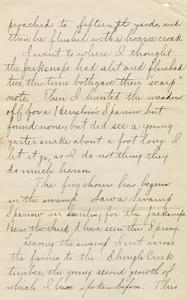 preached to fifteen ft. yards, and
then he flushed with a hoarse croak.
I went to where I thought
the jacksnipe had alit and flushed
two, this time both gave their "scaip"
note. Then I hunted the meadow
off for a Henslow's Sparrow but
found none, but did see a young
garter snake about a foot long. I
let it go, as I do not thing they
do much harm.
The frog chorus has begun
in the swamp. Saw a Swamp
Sparrow in hunting for the jacksnipe.
Heard the third, I have seen this Spring.
Leaving the swamp, I cut across
the farms to the Shingle Creek
timber, the young second growth of
which I have spoken before. This